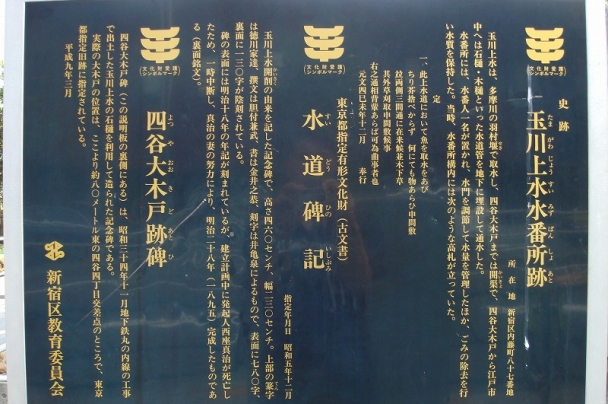 文化財愛護
シンボルマーク
史跡
玉川上水水番所跡
たまがわじょうすいみずばんしょあと
所在地 新宿区内藤町八十七番地
玉川上水は、多摩川の羽村堰で取水し、四谷大木戸までは開渠で、四谷大木戸から江戸市
中へは石樋・木樋といった水道管を地下に埋設して通水した。
水番所には、水番人一名が置かれ、水門を調節して水量を管理したほか、ごみの除去を行
い水質を保持した。当時、水番所構内には次のような高札が立っていた。
定
一、此上水道において魚を取水をあび
ちり芥捨べからず 何にても物あらひ申間敷
竝両側三間通に在来候並木下草
其外草刈取申間敷候事
右之通相背輩あらば可為曲事者也
元文四已未年十二月 奉行
文化財愛護
シンボルマーク
東京都指定有形文化財(古文書)
水道碑記
すいどうひいしぶみのき
指定年月日 昭和五年十二月
玉川上水開鑿の由来を記した記念碑で、高さ四六〇センチ、幅二三〇センチ。上部の篆字
は徳川家達、撰文は胆付兼武、書は金井之恭、刻字は井亀泉によるもので、表面に七八〇字、
裏面に一三〇字が陰刻されている。
碑の表面には明治十八年の年記が刻まれているが、建立計画中に発起人西座真治が死亡し
たため、一時中断し、真治の妻の努力により、明治二十八年(一八九五)完成したものであ
る(裏面銘文)。
文化財愛護
シンボルマーク
四谷大木戸跡碑
よつやおおきどあとひ
四谷大木戸碑(この説明板の裏側にある)は、昭和三十四年十一月地下鉄丸の内線の工事
で出土した玉川上水の石樋を利用して造られた記念碑である。
実際の大木戸の位置は、ここより約八〇メートル東の四谷四丁目交差点のところで、東京
都指定旧跡に指定されている。
平成九年三月
新宿区教育委員会